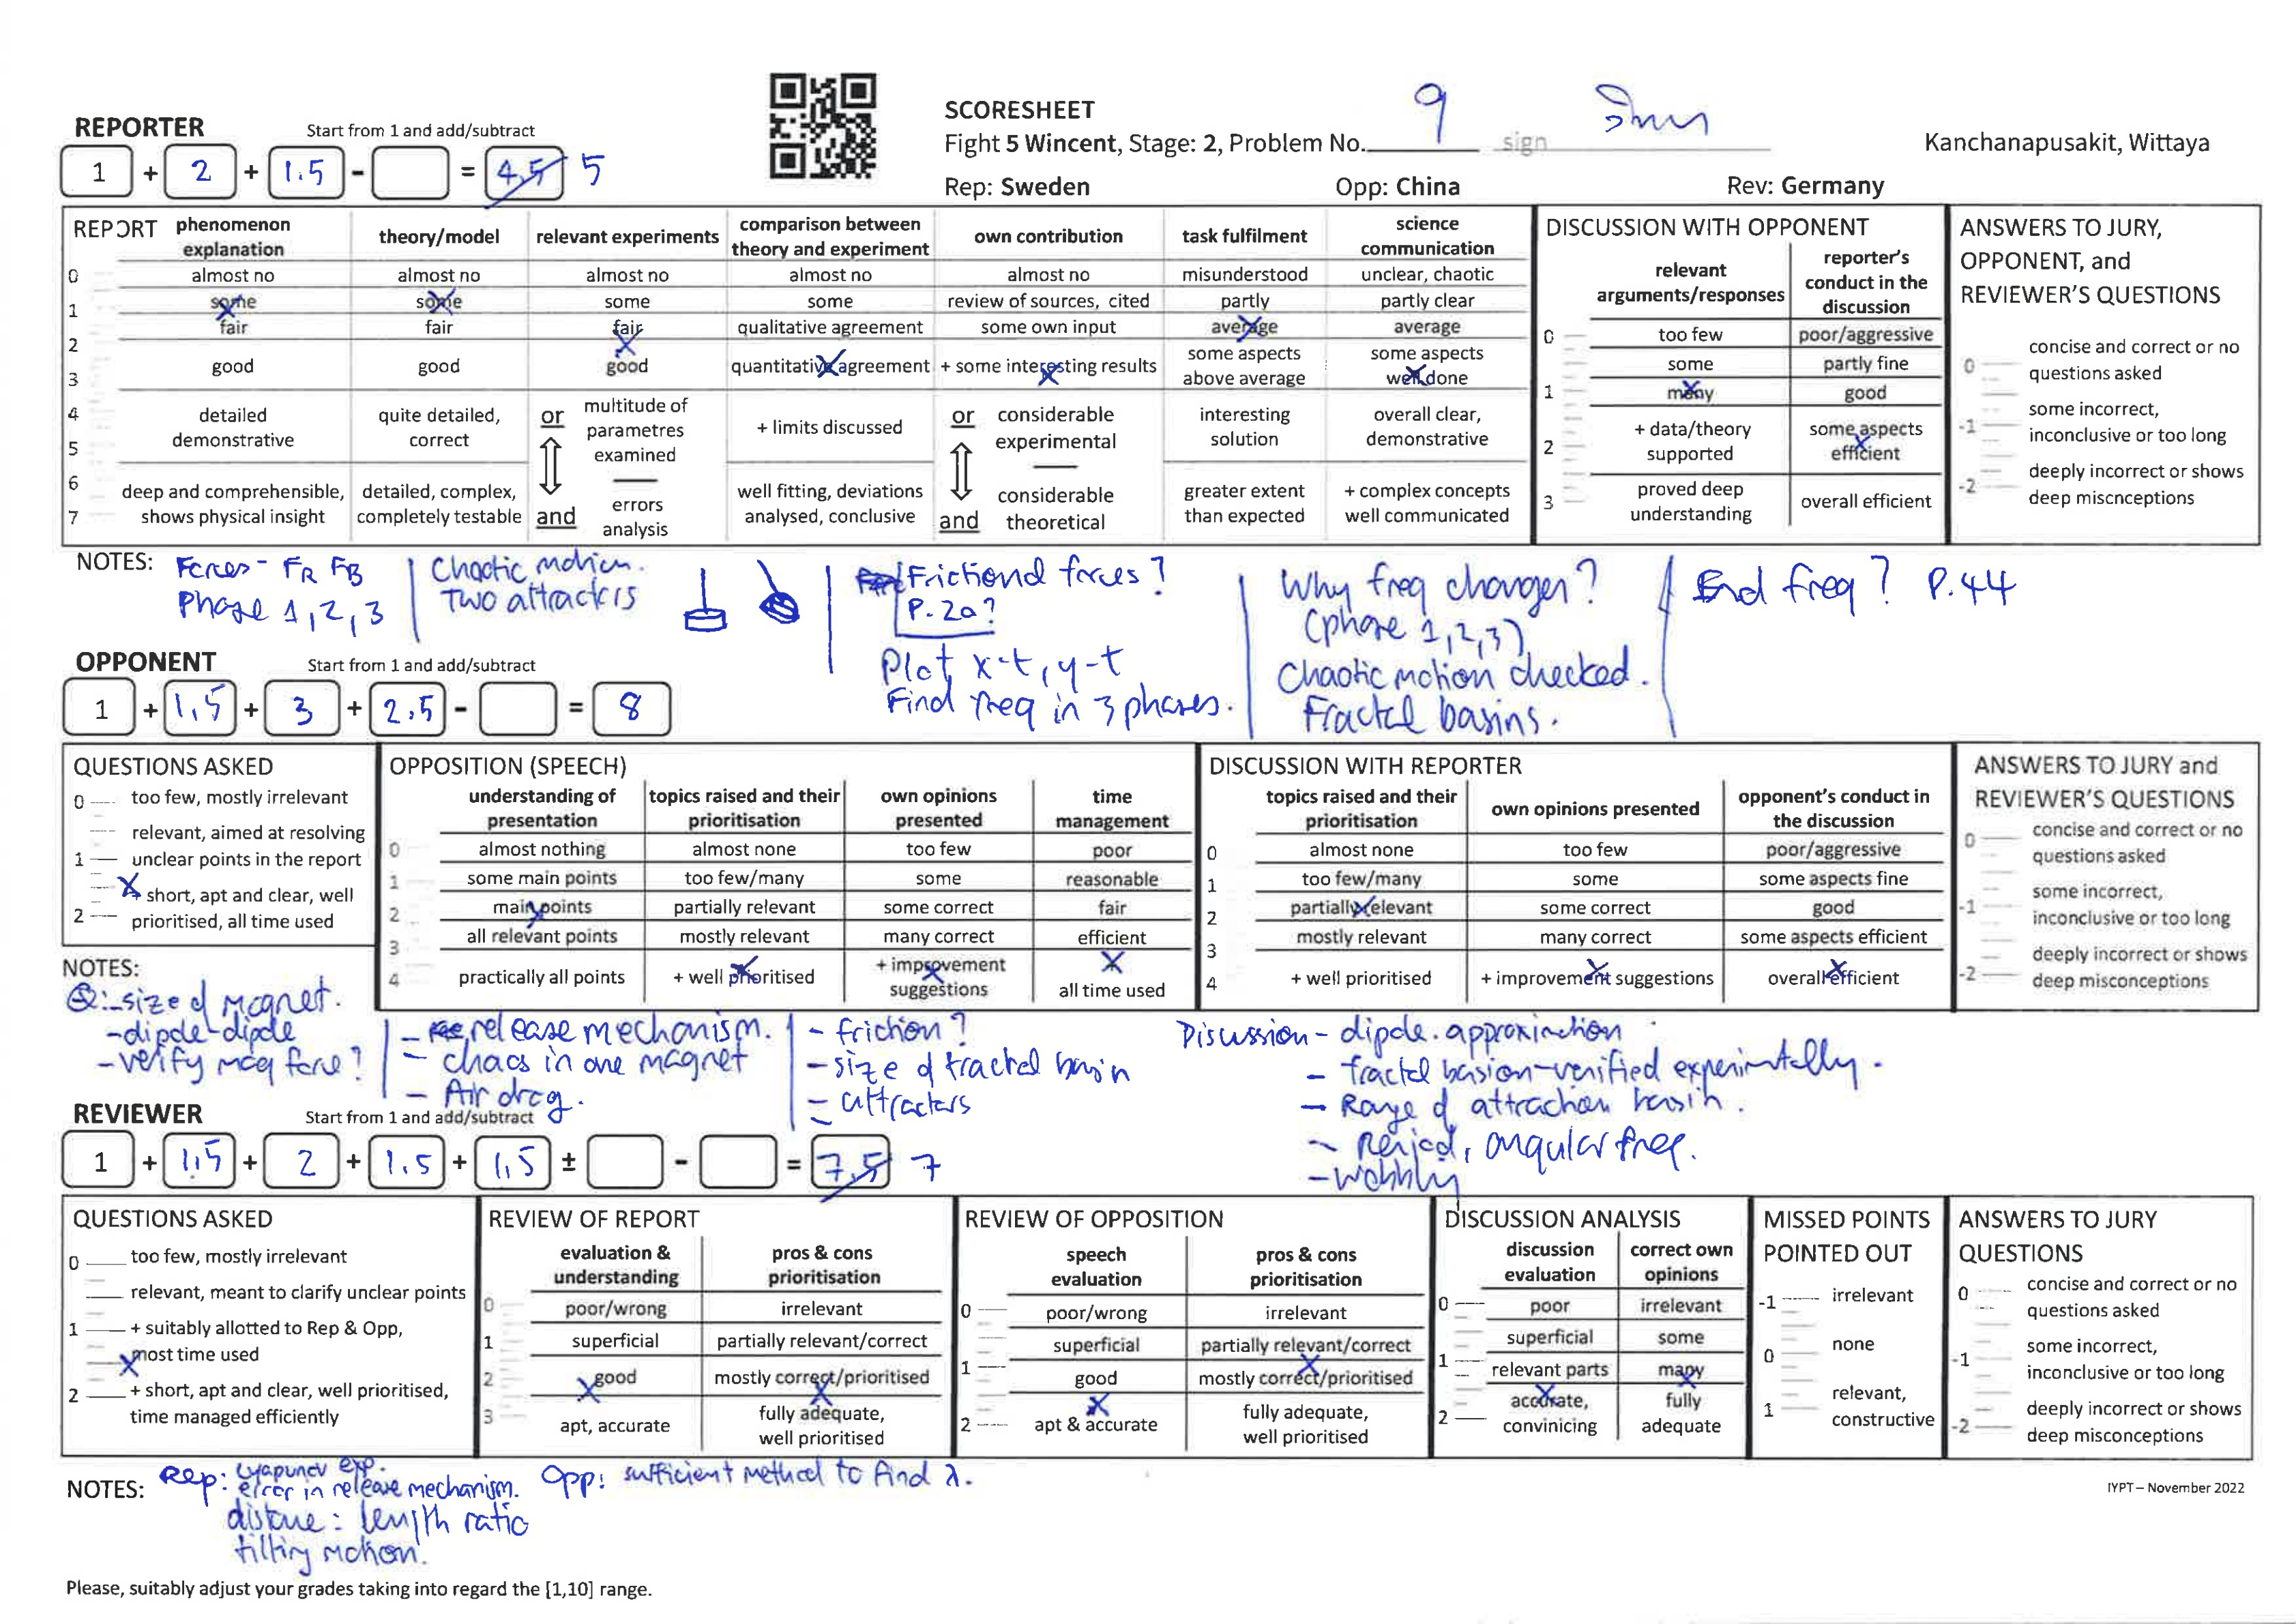 SCORESHEET
Fight 5 Wincent, Stage: 2, Problem No. 9 sign
Kanchanapusakit, Wittaya
Rep: Sweden Opp: China Rev: Germany
REPORTER Start from 1 and add/subtract
1 + 2 + 1.5 - = 4,5 5
REPORT
phenomenon explanation | theory/model | relevant experiments | comparison between theory and experiment | own contribution | task fulfilment | science communication
0 almost no | almost no | almost no | almost no | almost no | misunderstood | unclear, chaotic
1 some | some | some | some | review of sources, cited | partly | partly clear
fair | fair | fair | qualitative agreement | some own input | average | average
2
3 good | good | good | quantitative agreement | + some interesting results | some aspects above average | some aspects well done
4 detailed demonstrative | quite detailed, correct | or multitude of parametres examined | + limits discussed | or considerable experimental | interesting solution | overall clear, demonstrative
5
6 deep and comprehensible, shows physical insight | detailed, complex, completely testable | and errors analysis | well fitting, deviations analysed, conclusive | and considerable theoretical | greater extent than expected | + complex concepts well communicated
7
DISCUSSION WITH OPPONENT
relevant arguments/responses | reporter's conduct in the discussion
0 too few | poor/aggressive
some | partly fine
1 many | good
2 + data/theory supported | some aspects efficient
3 proved deep understanding | overall efficient
ANSWERS TO JURY, OPPONENT, and REVIEWER'S QUESTIONS
0 concise and correct or no questions asked
-1 some incorrect, inconclusive or too long
-2 deeply incorrect or shows deep miscnceptions
NOTES: Forces - FR FB
Phase 1, 2, 3
Chaotic motion.
Two attractors
Frictional forces?
P. 20?
Plot x-t, y-t
Find freq in 3 phases.
Why freq changes?
(phase 1, 2, 3)
Chaotic motion checked.
Fractal basins.
End freq? P.44
OPPONENT Start from 1 and add/subtract
1 + 1,5 + 3 + 2.5 - = 8
QUESTIONS ASKED
0 too few, mostly irrelevant
relevant, aimed at resolving
1 unclear points in the report
short, apt and clear, well
2 prioritised, all time used
OPPOSITION (SPEECH)
understanding of presentation | topics raised and their prioritisation | own opinions presented | time management
0 almost nothing | almost none | too few | poor
1 some main points | too few/many | some | reasonable
2 main points | partially relevant | some correct | fair
3 all relevant points | mostly relevant | many correct | efficient
4 practically all points | + well prioritised | + improvement suggestions | all time used
DISCUSSION WITH REPORTER
topics raised and their prioritisation | own opinions presented | opponent's conduct in the discussion
0 almost none | too few | poor/aggressive
1 too few/many | some | some aspects fine
2 partially relevant | some correct | good
3 mostly relevant | many correct | some aspects efficient
4 + well prioritised | + improvement suggestions | overall efficient
ANSWERS TO JURY and REVIEWER'S QUESTIONS
0 concise and correct or no questions asked
-1 some incorrect, inconclusive or too long
-2 deeply incorrect or shows deep misconceptions
NOTES:
Q: - size of magnet.
- dipole-dipole
- verify mag force?
- release mechanism.
- chaos in one magnet
- Air drag.
- friction?
- size of fractal basin
- attractors
Discussion - dipole approximation
- fractal basion - verified experimentally.
- Range of attraction basin.
- Period, angular freq.
- wobbly
REVIEWER Start from 1 and add/subtract
1 + 1,5 + 2 + 1.5 + 1,5 ± - = 7,5 7
QUESTIONS ASKED
0 too few, mostly irrelevant
relevant, meant to clarify unclear points
1 + suitably allotted to Rep & Opp,
most time used
2 + short, apt and clear, well prioritised,
time managed efficiently
REVIEW OF REPORT
evaluation & understanding | pros & cons prioritisation
0 poor/wrong | irrelevant
1 superficial | partially relevant/correct
2 good | mostly correct/prioritised
3 apt, accurate | fully adequate, well prioritised
REVIEW OF OPPOSITION
speech evaluation | pros & cons prioritisation
0 poor/wrong | irrelevant
superficial | partially relevant/correct
1 good | mostly correct/prioritised
2 apt & accurate | fully adequate, well prioritised
DISCUSSION ANALYSIS
discussion evaluation | correct own opinions
0 poor | irrelevant
superficial | some
1 relevant parts | many
2 accurate, convinicing | fully adequate
MISSED POINTS POINTED OUT
-1 irrelevant
0 none
1 relevant, constructive
ANSWERS TO JURY QUESTIONS
0 concise and correct or no questions asked
-1 some incorrect, inconclusive or too long
-2 deeply incorrect or shows deep misconceptions
NOTES: Rep: Lyapunov exp.
error in release mechanism.
distance : length ratio
tilting motion.
Opp: sufficient method to find λ.
IYPT – November 2022
Please, suitably adjust your grades taking into regard the [1,10] range.